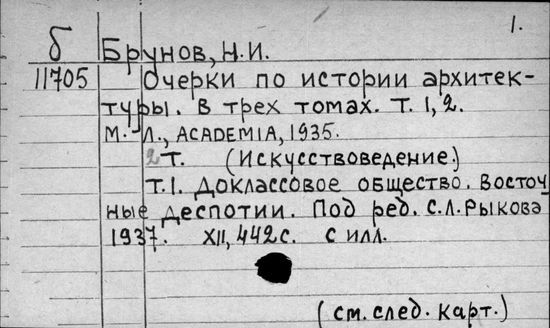 1.
б Брунов, Н.И.
11705 Очерки по истории архитек-
туры. В трех томах. Т. 1, 2.
М.-Л., ACADEMIA, 1935.
2 т. (Искусствоведение.)
Т.1. Доклассовое общество. Восточ
ные деспотии. Под ред. С.Л.Рыкова
1937. XII, 442 с. с илл.
(см. след. карт.)